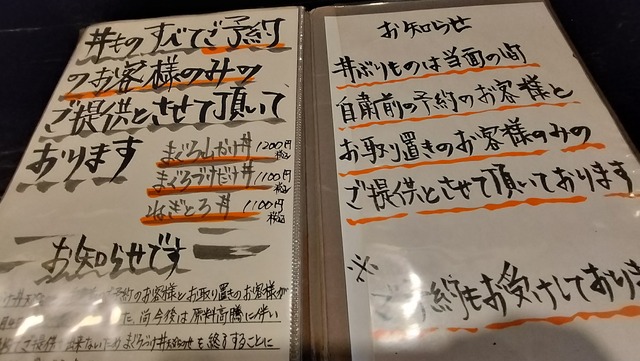 丼ものすべてご予約
のお客様のみの
ご提供とさせて頂いて
おります
まぐろ山かけ丼 1200円 税込
まぐろづけだけ丼 1100円 税込
ねぎとろ丼 1100円 税込
お知らせです
予約のお客様とお取り置きのお客様が
た、尚今後は原料高騰に伴い
ご提供出来ないため
を終了することに
お知らせ
丼ぶりものは当面の間
自粛前の予約のお客様と
お取り置きのお客様のみの
ご提供とさせて頂いております
※
ご予約もお受けしており